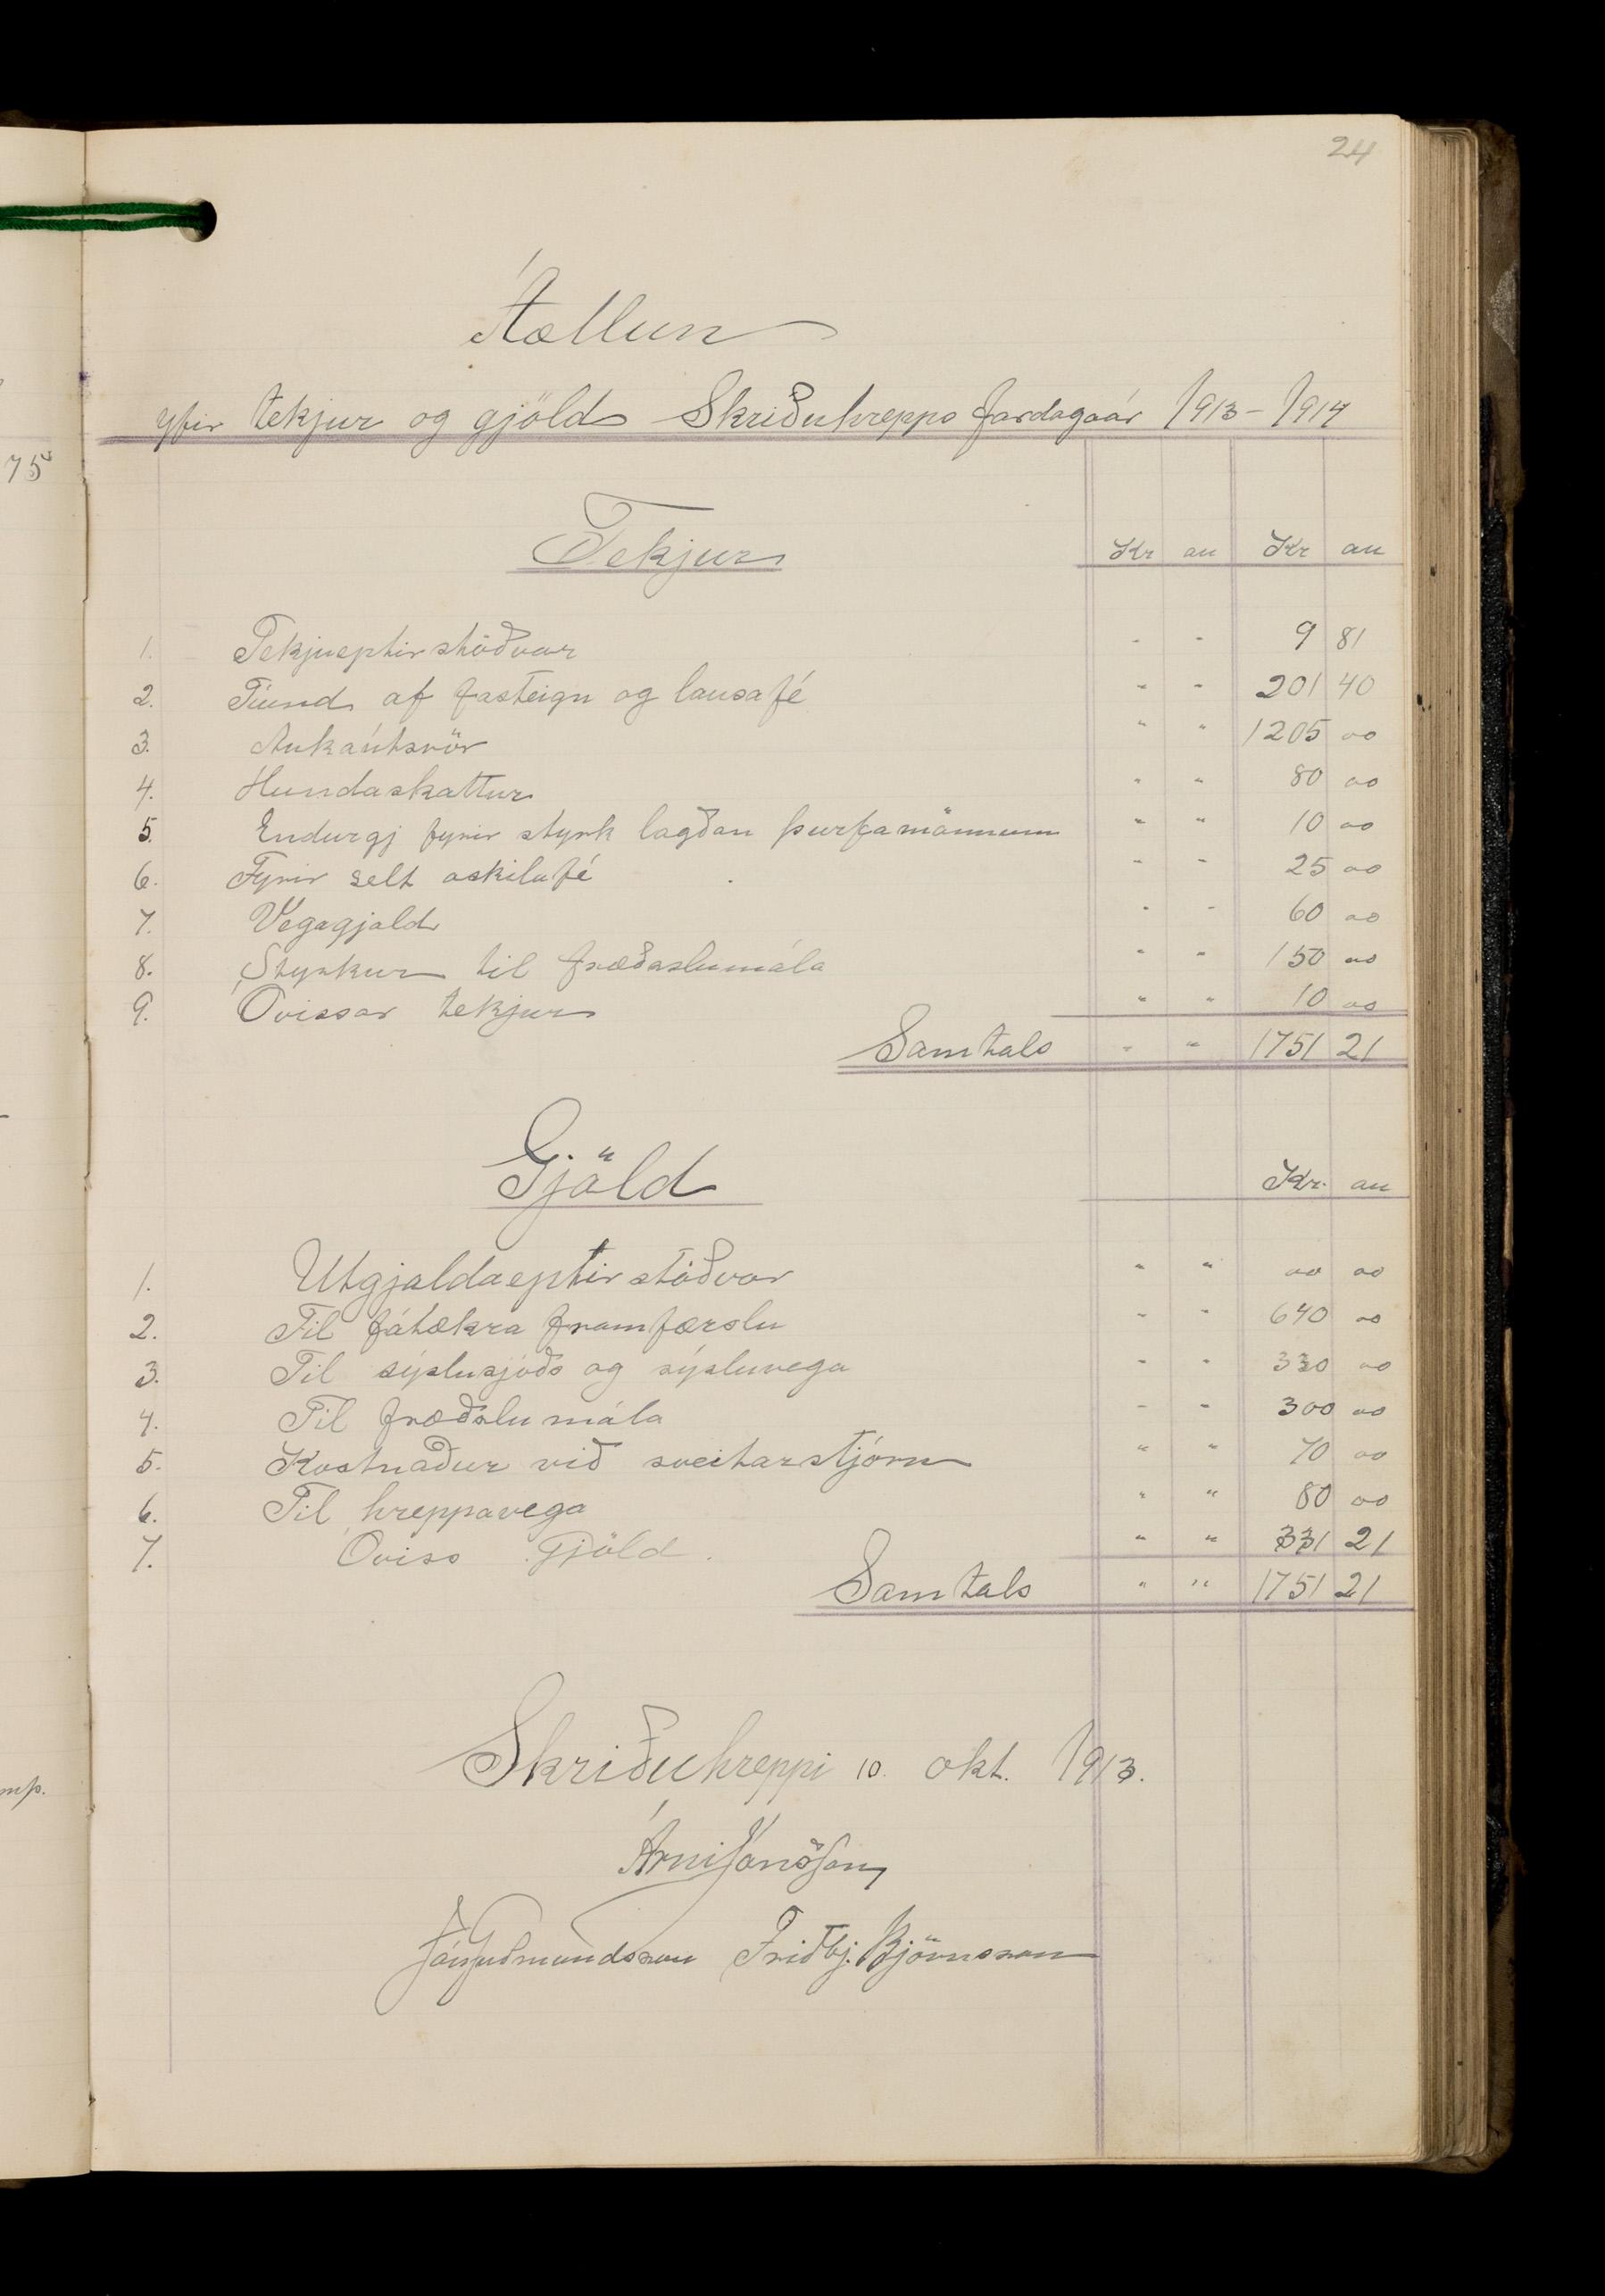 24
Áællun
yfir tekjur og gjöld Skriðuhrepps fardagaár 1913-1914
75
Tekjur
Kr au Kr au
1. Tekjueptirstöðvar - - 9 81
2. Tíund af fasteign og lausafé - - 201 40
3. Aukaútsvör " " 1205 00
4. Hundaskattur " " 80 00
5. Endurgj fyrir styrk lagðan þurfamönnum " " 10 00
6. Fyrir selt oskilafé - - 25 00
7. Vegagjald - - 60 00
8. Styrkur til fræðaslumála " " 150 00
9. Óvissar tekjur " " 10 00
Samtals - " 1751 21
Gjöld
Kr. au
1. Utgjaldaeptirstöðvar " " 00 00
2. Til fátækra framfærslu - - 640 00
3. Til sýslusjóðs og sýsluvega - - 330 00
4. Til fræðslumála - - 300 00
5. Kostnaður við sveitarstjórn " " 70 00
6. Til hreppavega " " 80 00
7. Óviss Gjöld. " " 331 21
Samtals " " 1751 21
Skriðuhreppi 10. okt. 1913.
Árni Jónsson
Jón Guðmundsson Friðbj. Björnsson